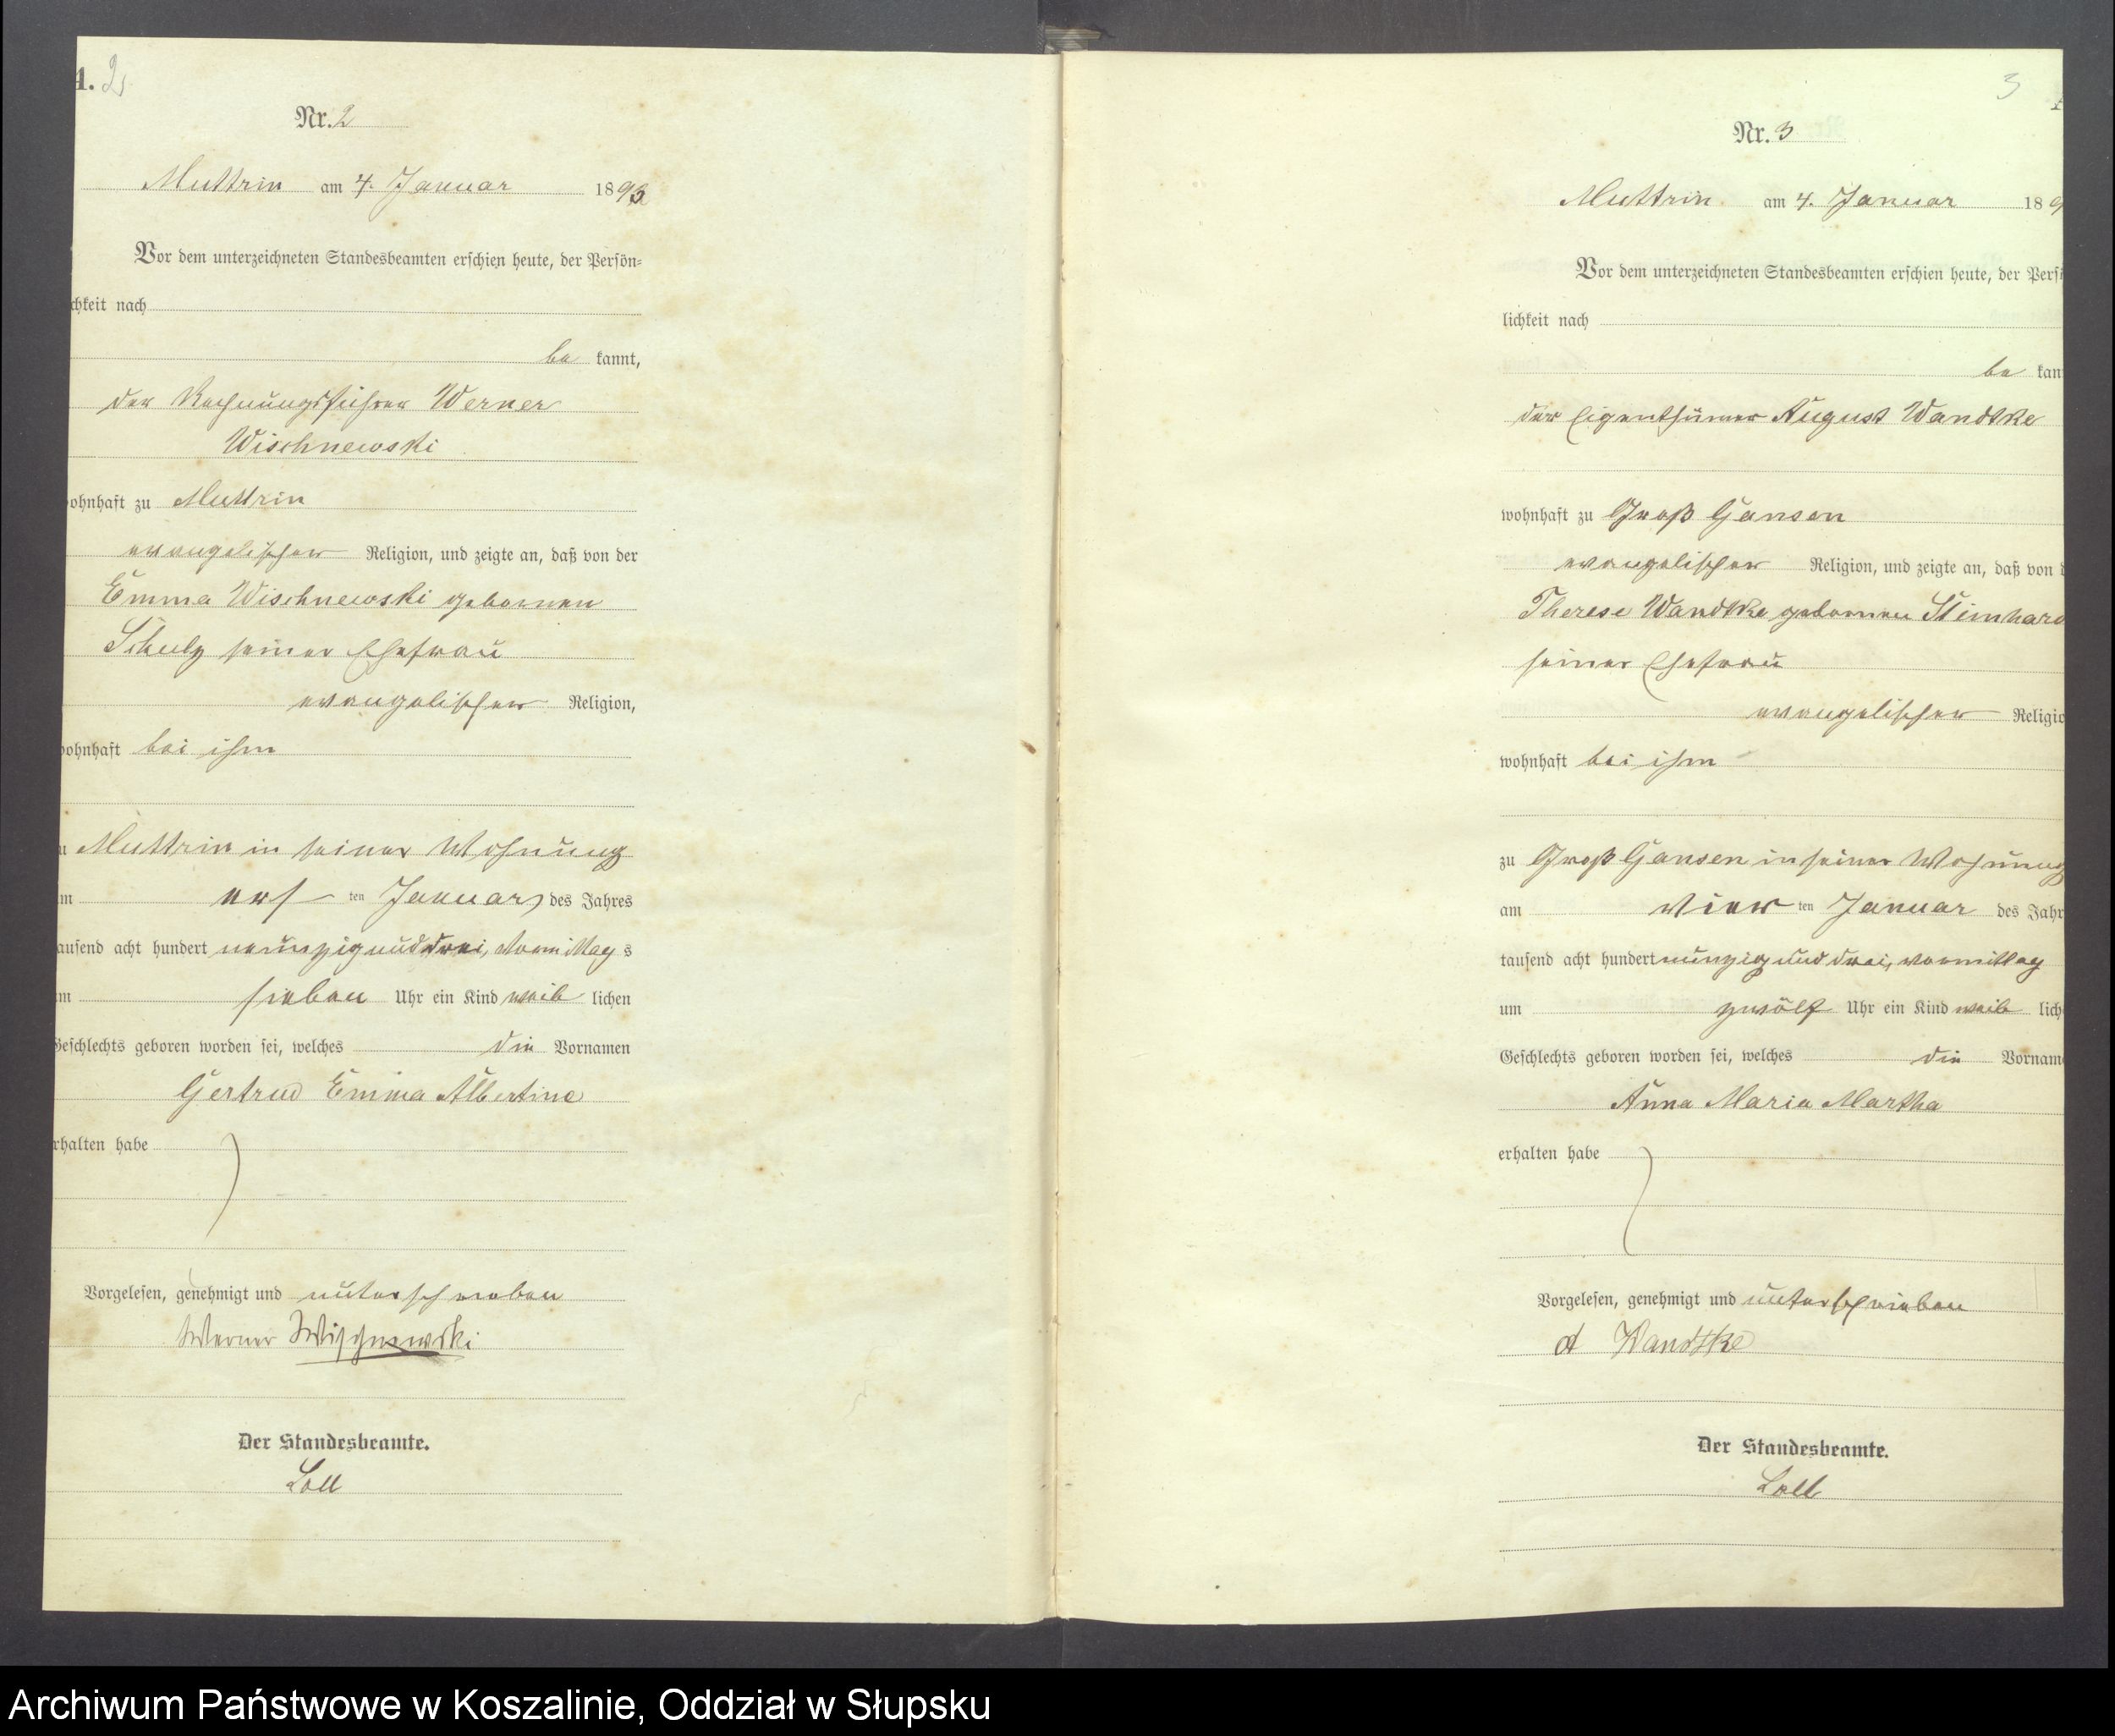 A. 2
Nr. 2
Muttrin am 4. Januar 1893
Vor dem unterzeichneten Standesbeamten erschien heute, der Persön-
chkeit nach
be kannt,
der Rechnungsführer Werner
Wischnewski
ohnhaft zu Muttrin
evangelischer Religion, und zeigte an, daß von der
Emma Wischnewski gebornen
Schulz seiner Ehefrau
evangelischer Religion,
ohnhaft bei ihm
u Muttrin in seiner Wohnung
m ers ten Januar des Jahres
ausend acht hundert neunzig und drei, Vormittag s
m sieben Uhr ein Kind weib lichen
Geschlechts geboren worden sei, welches die Vornamen
Gertrud Emma Albertine
rhalten habe
Vorgelesen, genehmigt und unterschrieben
Werner Wischnewski
Der Standesbeamte.
Loll
3
Nr. 3
Muttrin am 4. Januar 189
Vor dem unterzeichneten Standesbeamten erschien heute, der Pers
lichkeit nach
be kan
der Eigenthümer August Wandtke
wohnhaft zu Groß Gansen
evangelischer Religion, und zeigte an, daß von d
Therese Wandtke gebornen Steinhard
seiner Ehefrau
evangelischer Religio
wohnhaft bei ihm
zu Groß Gansen in seiner Wohnung
am vier ten Januar des Jahr
tausend acht hundert neunzig und drei, vormittag
um zwölf Uhr ein Kind weib lich
Geschlechts geboren worden sei, welches die Vornam
Anna Maria Martha
erhalten habe
Vorgelesen, genehmigt und unterschrieben
A Wandtke
Der Standesbeamte.
Loll
Archiwum Państwowe w Koszalinie, Oddział w Słupsku